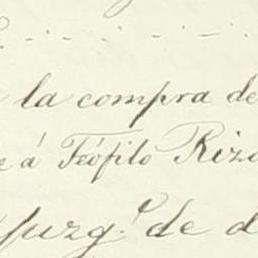 la compra de
e á Teófilo Riza
Juzg.º de d